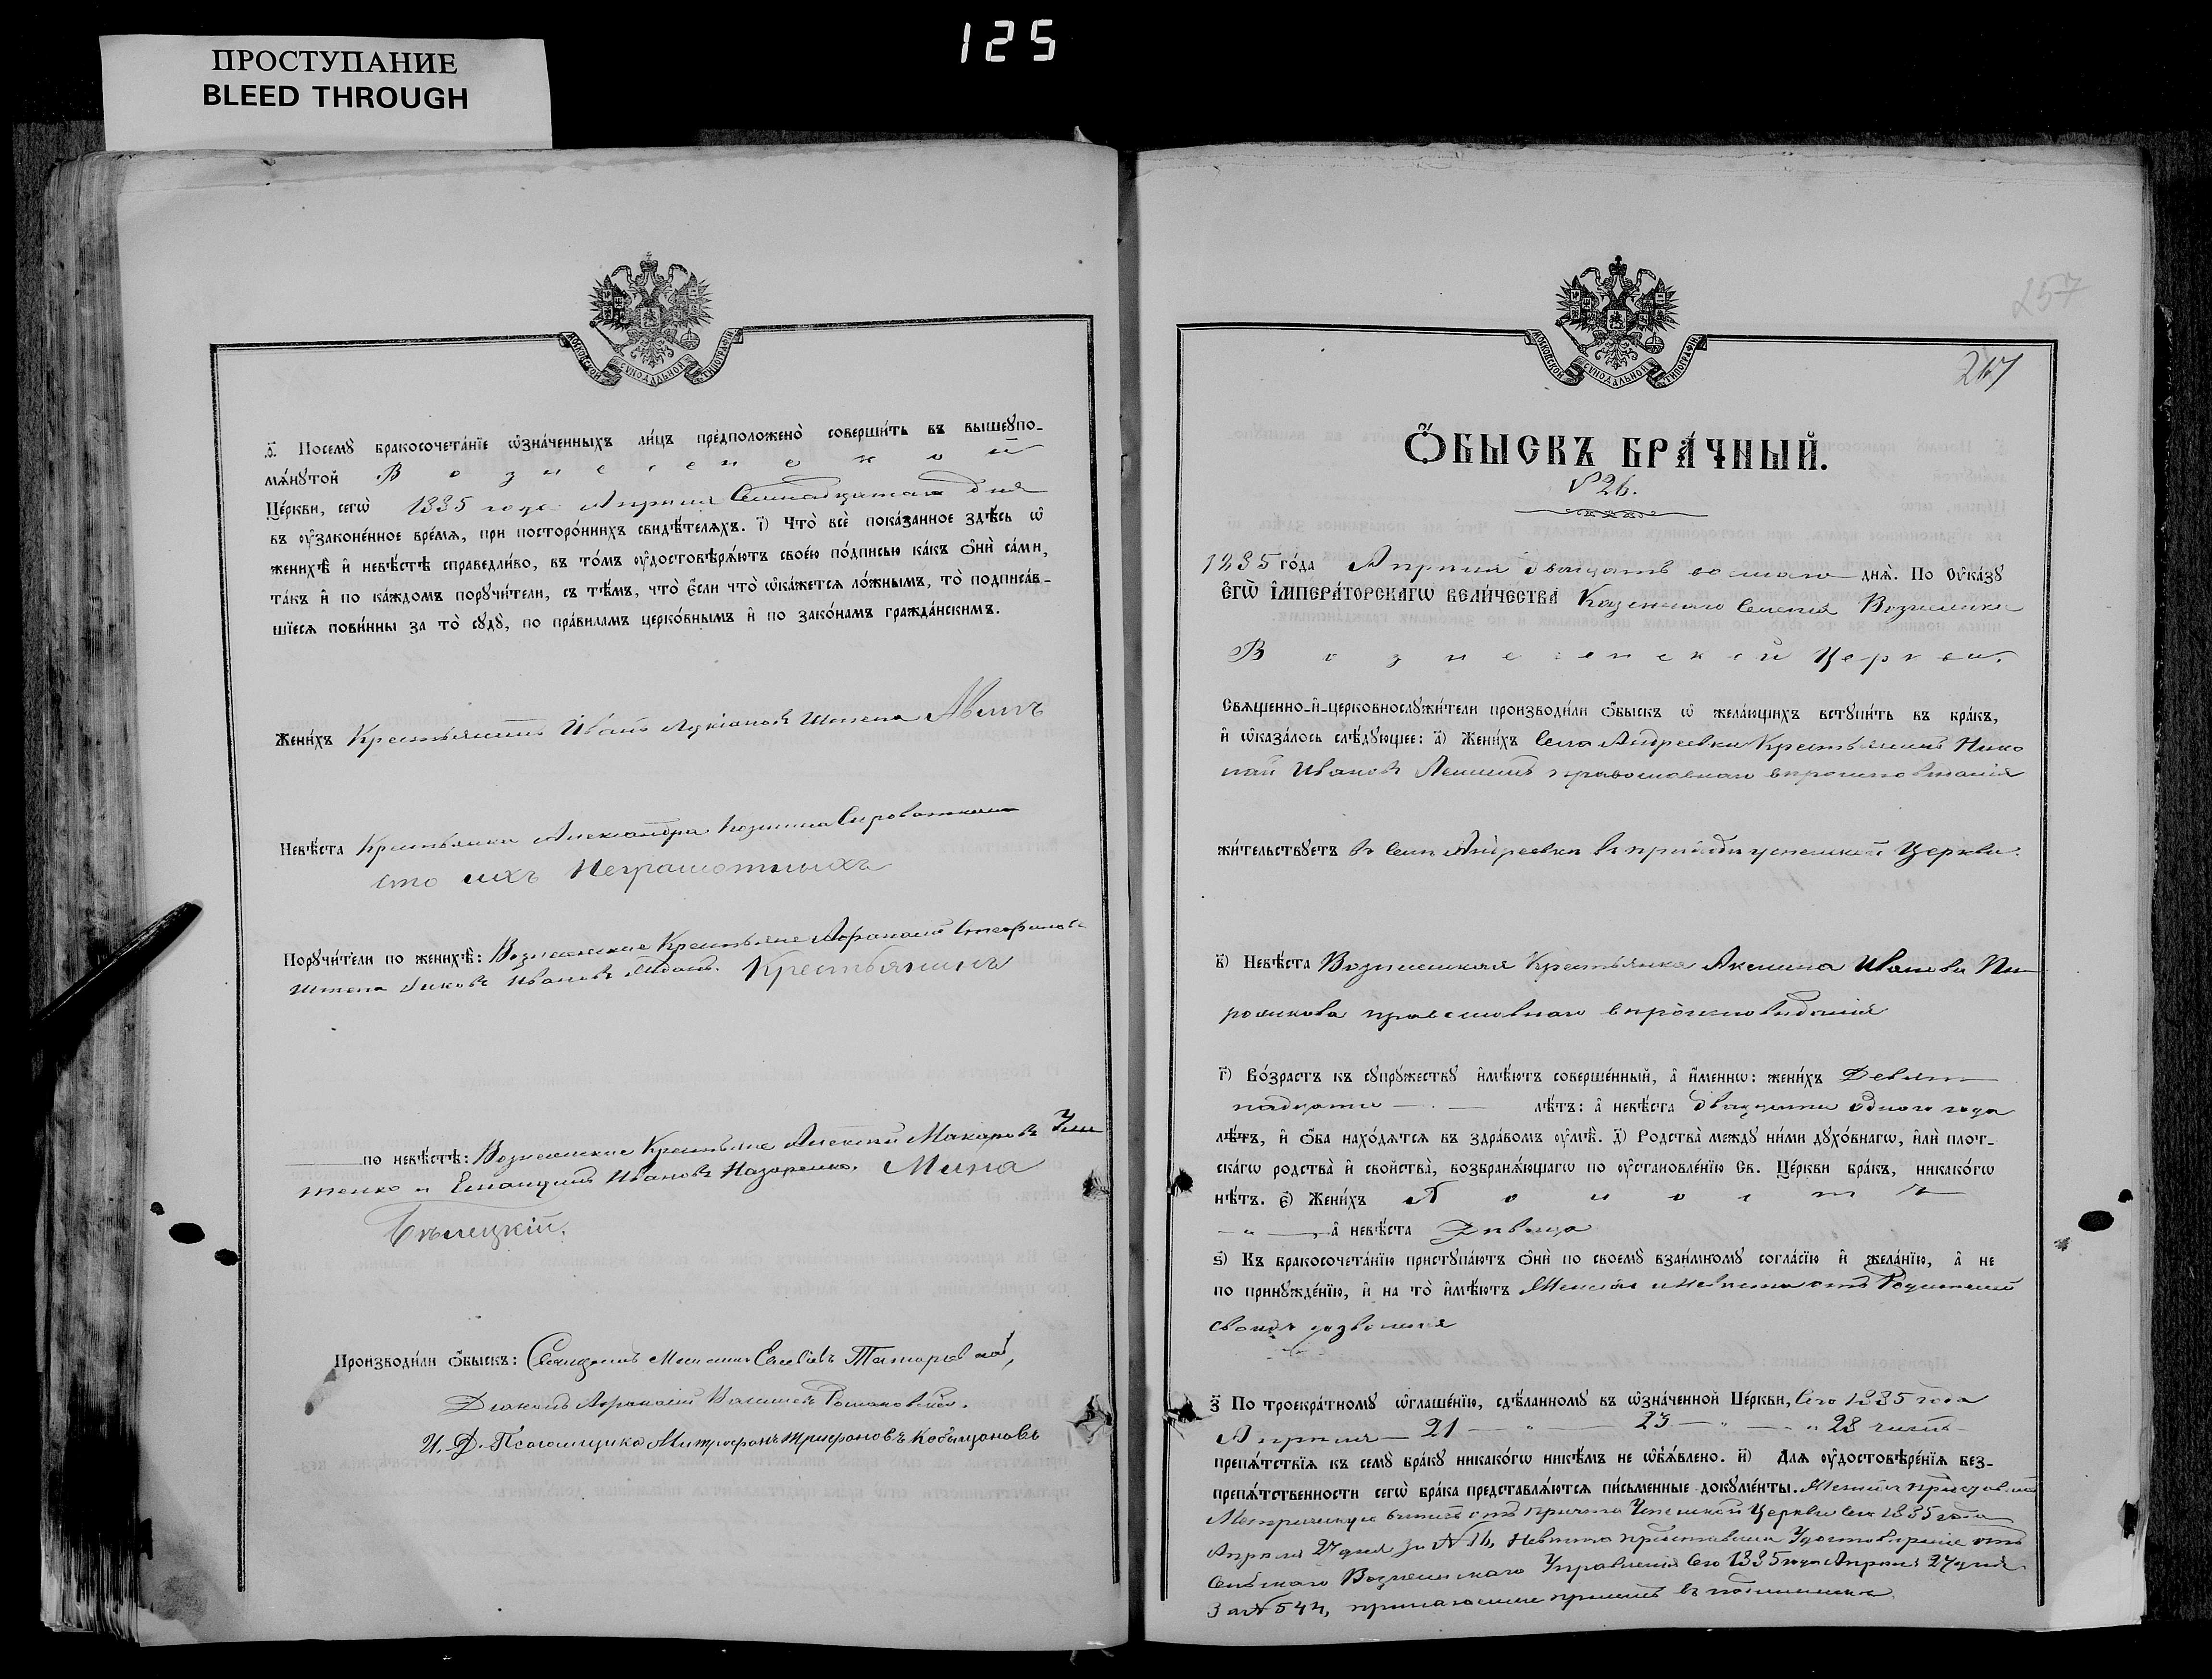 125
ПРОСТУПАНИЕ
BLEED THROUGH
МОСКОВСКОЙ СѴНОДАЛЬНОЙ ТИПОГРАФІИ
Посемꙋ бракосочета́нїе ѡ҆зна́ченныхъ ли́цъ предположено̀ соверши́ть въ вышеꙋпо-
мѧ́нꙋтой Вознесенской
Це́ркви, сегѡ̀ 1885 года Апрѣля Семнадцатаго дня
въ ᲂу҆зако́ненное вре́мѧ, при посторо́ннихъ свидѣ́телѧхъ. і҃) Что̀ всѐ пока́занное здѣ́сь ѡ҆
женихѣ̀ и҆ невѣ́стѣ справедли́во, въ то́мъ ᲂу҆достовѣрѧ́ютъ свое́ю по́дписью ка́къ ѻ҆нѝ са́ми,
та́къ и҆ по ка́ждомъ порꙋчи́тели, съ тѣ́мъ, что̀ є҆́сли что̀ ѡ҆ка́жетсѧ ло́жнымъ, то̀ подписа́в-
шїесѧ пови́нны за то̀ сꙋдꙋ̀, по пра́виламъ церко́внымъ и҆ по зако́намъ гражда́нскимъ.
Жени́хъ Крестьянинъ Иванъ Лукіановъ Штепа
Невѣ́ста Крестьянка Александра Сыроваткина
ихъ Неграмотныхъ
Порꙋчи́тели по женихѣ̀: Вознесенские Крестьяне Афанасій Стефановъ
Штепа Ивановъ Крестьянинъ
по невѣ́стѣ: Вознесенские Крестьяне Алексѣй Макаровъ
и Ивановъ Назаренко. Мина
Бѣлецкій.
Производи́ли ѻ҆́быскъ: Священникъ
Діаконъ Афанасій Васильевъ Романовскій.
И. Д. Псаломщика Митрофанъ Трифоновъ
257
МОСКОВСКОЙ СѴНОДАЛЬНОЙ ТИПОГРАФІИ
ѺБЫСКЪ БРА́ЧНЫЙ.
№ 26.
1885 го́да Апрѣля двадцать восьмаго днѧ̀. По ᲂу҆ка́зꙋ
Є҆гѡ̀ И҆мпера́торскагѡ Вели́чества Казеннаго Селенія Вознесенки
Вознесенской Церкви.
Свѧще́нно-и҆-церковнослꙋжи́тели производи́ли ѻ҆́быскъ ѡ҆ жела́ющихъ встꙋпи́ть въ бра́къ,
и҆ ѡ҆каза́лось слѣ́дꙋющее: а҃) Жени́хъ Села Андреевки Крестьянинъ Нико
лай Ивановъ православнаго вѣроисповѣданія
жи́тельствꙋетъ въ Селѣ Андреевкѣ въ приходѣ Успенской Церкви.
в҃) Невѣ́ста Вознесенская Крестьянка Аксинія Иванова Пи-
рожкова православнаго вѣроисповѣданія
г҃) Во́зрастъ къ сꙋпрꙋ́жествꙋ и҆мѣ́ютъ соверше́нный, а҆ и҆́меннѡ: жени́хъ Девят-
надцати лѣ́тъ: а҆ невѣ́ста двадцати одного года
лѣ́тъ, и҆ ѻ҆́ба нахо́дѧтсѧ въ здра́вомъ ᲂу҆мѣ̀. д҃) Родства̀ ме́ждꙋ ни́ми дꙋхо́внагѡ, и҆лѝ плот-
ска́гѡ родства̀ и҆ свойства̀, возбранѧ́ющагѡ по ᲂу҆становле́нїю Св. Це́ркви бра́къ, никако́гѡ
нѣ́тъ. є҃) Жени́хъ Холостъ
а҆ невѣ́ста Дѣвица
ѕ҃) Къ бракосочета́нїю пристꙋпа́ютъ ѻ҆нѝ по своемꙋ̀ взаи́мномꙋ согла́сїю и҆ жела́нїю, а҆ не
по принꙋжде́нїю, и҆ на то̀ и҆мѣ́ютъ Женихъ и Невѣста отъ Родителей
своихъ дозволенія
з҃) По троекра́тномꙋ ѡ҆глаше́нїю, сдѣ́ланномꙋ въ ѡ҆зна́ченной Це́ркви, Сего 1885 года
Апрѣля 21 — „ — 23 — „ — 28 чиселъ
препѧ́тствїѧ къ семꙋ̀ бра́кꙋ никако́гѡ никѣ́мъ не ѡ҆б̾ѧ́влено. и҃) Длѧ ᲂу҆достовѣре́нїѧ без-
препѧ́тственности сегѡ̀ бра́ка представлѧ́ютсѧ пи́сьменные докꙋме́нты. Женихъ представилъ
Метрическую выпись отъ причта Успенской Церкви Сего 1885 года
Апрѣля 27 дня за № 16, Невѣста представила Удостовѣреніе отъ
Сельскаго Вознесенскаго Управленія Сего 1885 года Апрѣля 27 дня
За № 544,